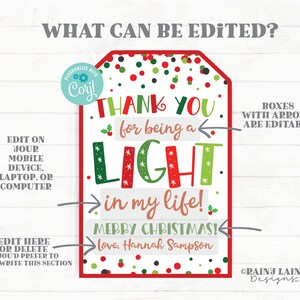 WHAT CAN BE EDITED?
PERSONALIZE WITH
Corjl
THANK YOU
for being a
LIGHT
in my life!
MERRY CHRISTMAS!
Love, Hannah Sampson
BOXES
WITH ARRO
ARE EDITAB
EDIT ON
YOUR
MOBILE
DEVICE,
LAPTOP, OR
COMPUTER
EDIT HERE
OR DELETE
OU'D PREFER TO
WRITE THIS SECTION